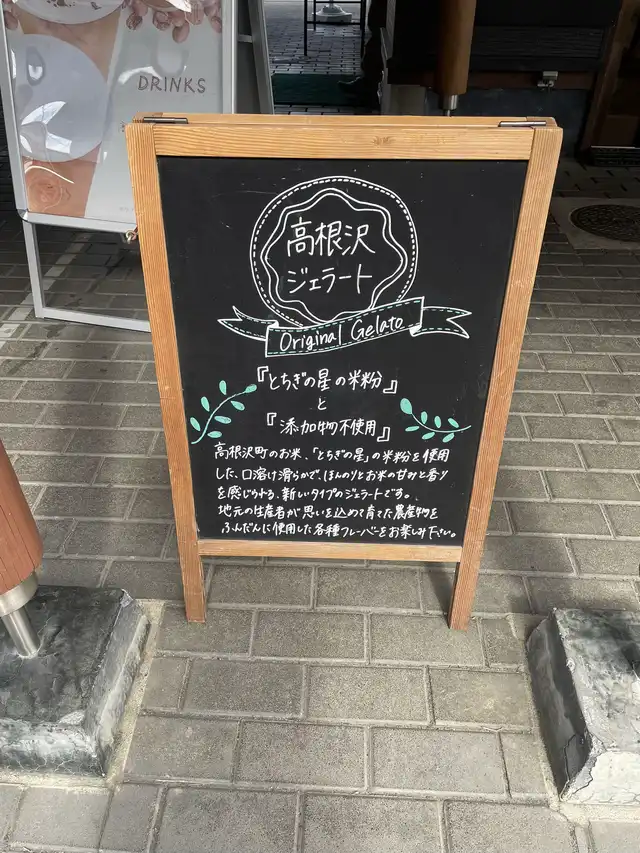 DRINKS
高根沢
ジェラート
Original Gelato
『とちぎの星の米粉』
と
『添加物不使用』
高根沢町のお米、「とちぎの星」の米粉を使用
した、口溶け滑らかで、ほんのりとお米の甘みと香り
を感じられる、新しいタイプのジェラートです。
地元の生産者が思いを込めて育てた農産物を
ふんだんに使用した各種フレーバーをお楽しみ下さい。